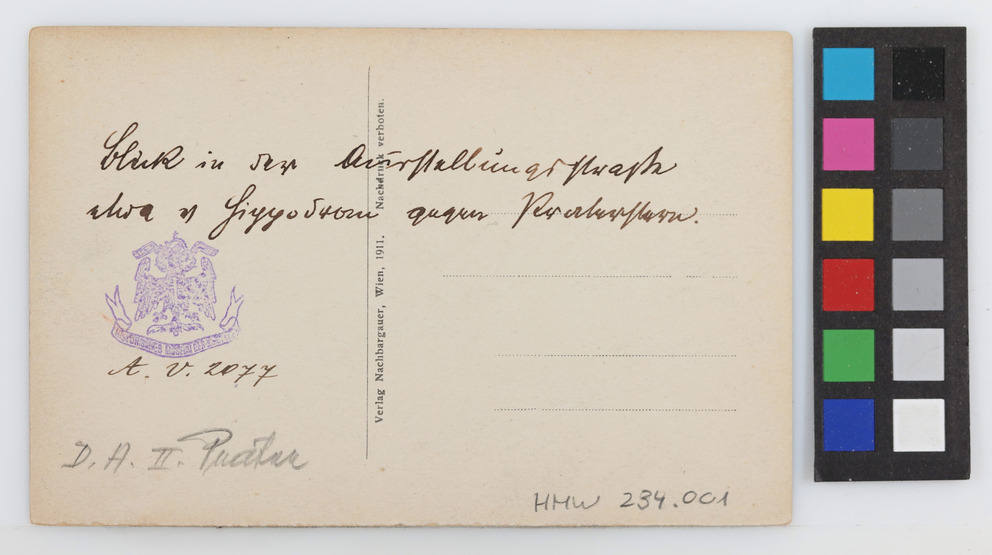 Blick in der Ausstellungsstraße
etwa v Hippodrom gegen Praterstern.
A. V. 2077
D. A. II. Prater
Verlag Nachbargauer, Wien, 1911. Nachdruck verboten.
HMW 234.001